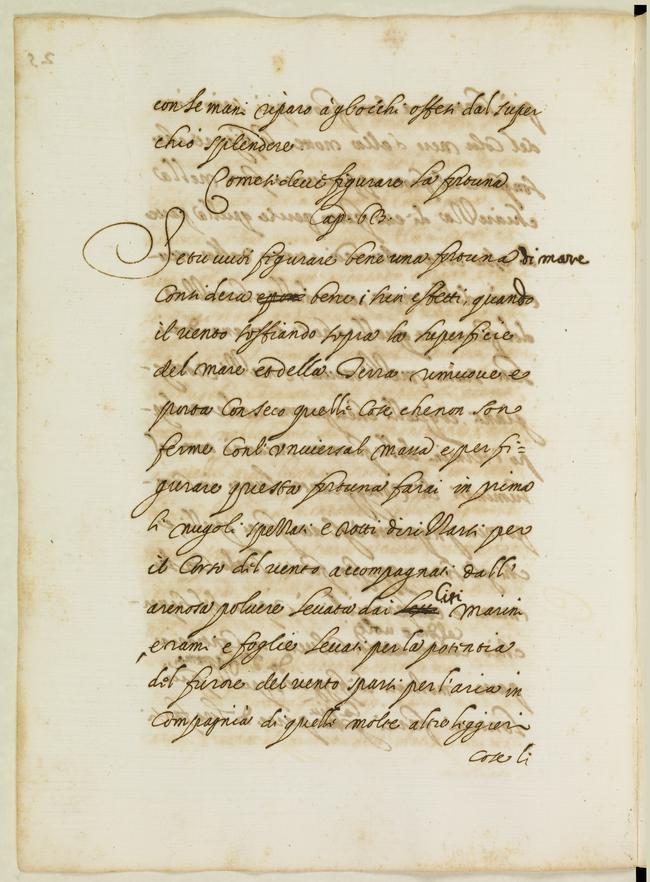 con le mani riparo a gl'occhi offesi dal super
chio splendore
Come si deve figurare la fortuna
Cap. 63.
Se tu vuoi figurare bene una fortuna di mare
Considera bene i suoi effetti, quando
il vento soffiando sopra la superficie
del mare et della Terra rimuove e
porta Con seco quelle Cose che non son
ferme Con l'universal massa e per fi=
gurare questa fortuna farai in primo
li nugoli spezzati e Rotti dirizzarsi per
il Corso del vento accompagnati dall'
arenosa polvere levata dai liti Marini
e rami e foglie levati per la potentia
del furore del vento sparsi per l'aria in
Compagnia di quelle molte altre leggieri
cose li